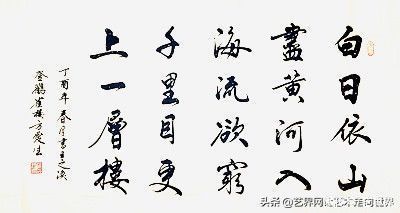 白日依山
盡黄河入
海流欲窮
千里目更
上一層樓
丁酉年春月書王之渙
登鸛雀樓方
头条@艺界网让艺术走向世界